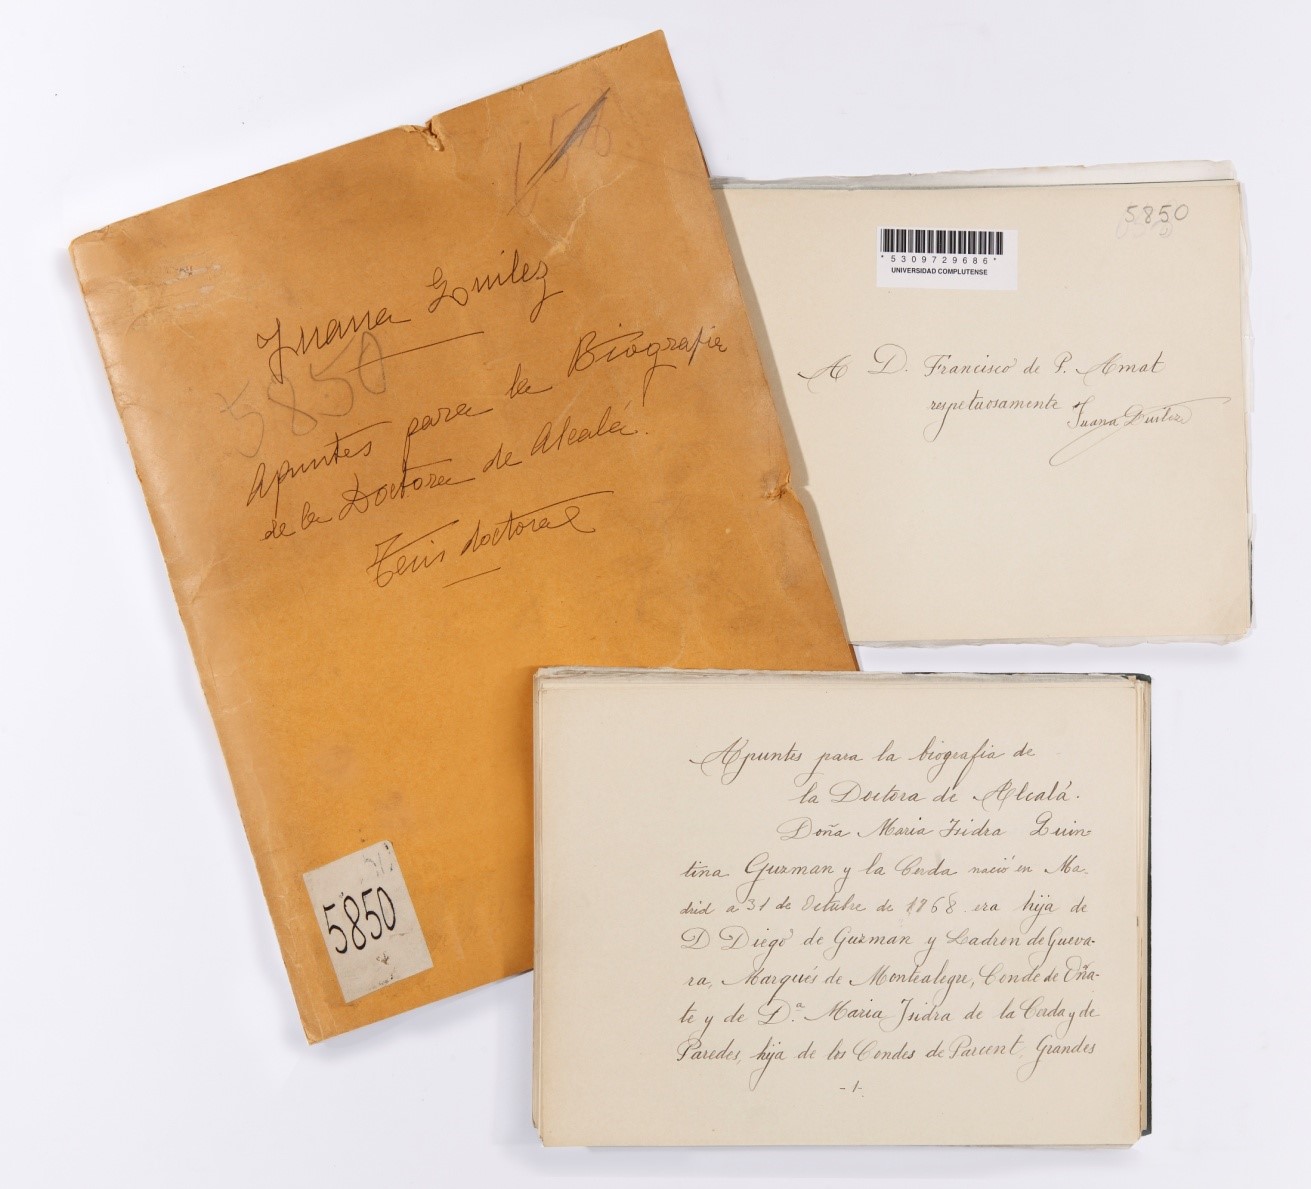 158
Juana Quilez
5850
Apuntes para la Biografia
de la Doctora de Alcalá.
Tesis doctoral
5850
5850
*5309729686*
UNIVERSIDAD COMPLUTENSE
A D. Francisco de P. Amat
respetuosamente Juana Quilez
Apuntes para la biografia de
la Doctora de Alcalá.
Doña Maria Isidra Quin-
tina Guzman y la Cerda nació en Ma-
drid a 31 de Octubre de 1768 era hija de
D Diego de Guzman y Ladron de Gueva-
ra, Marqués de Montealegre, Conde de Oña-
te y de D.ª Maria Isidra de la Cerda y de
Paredes, hija de los Condes de Parcent, Grandes
-1-